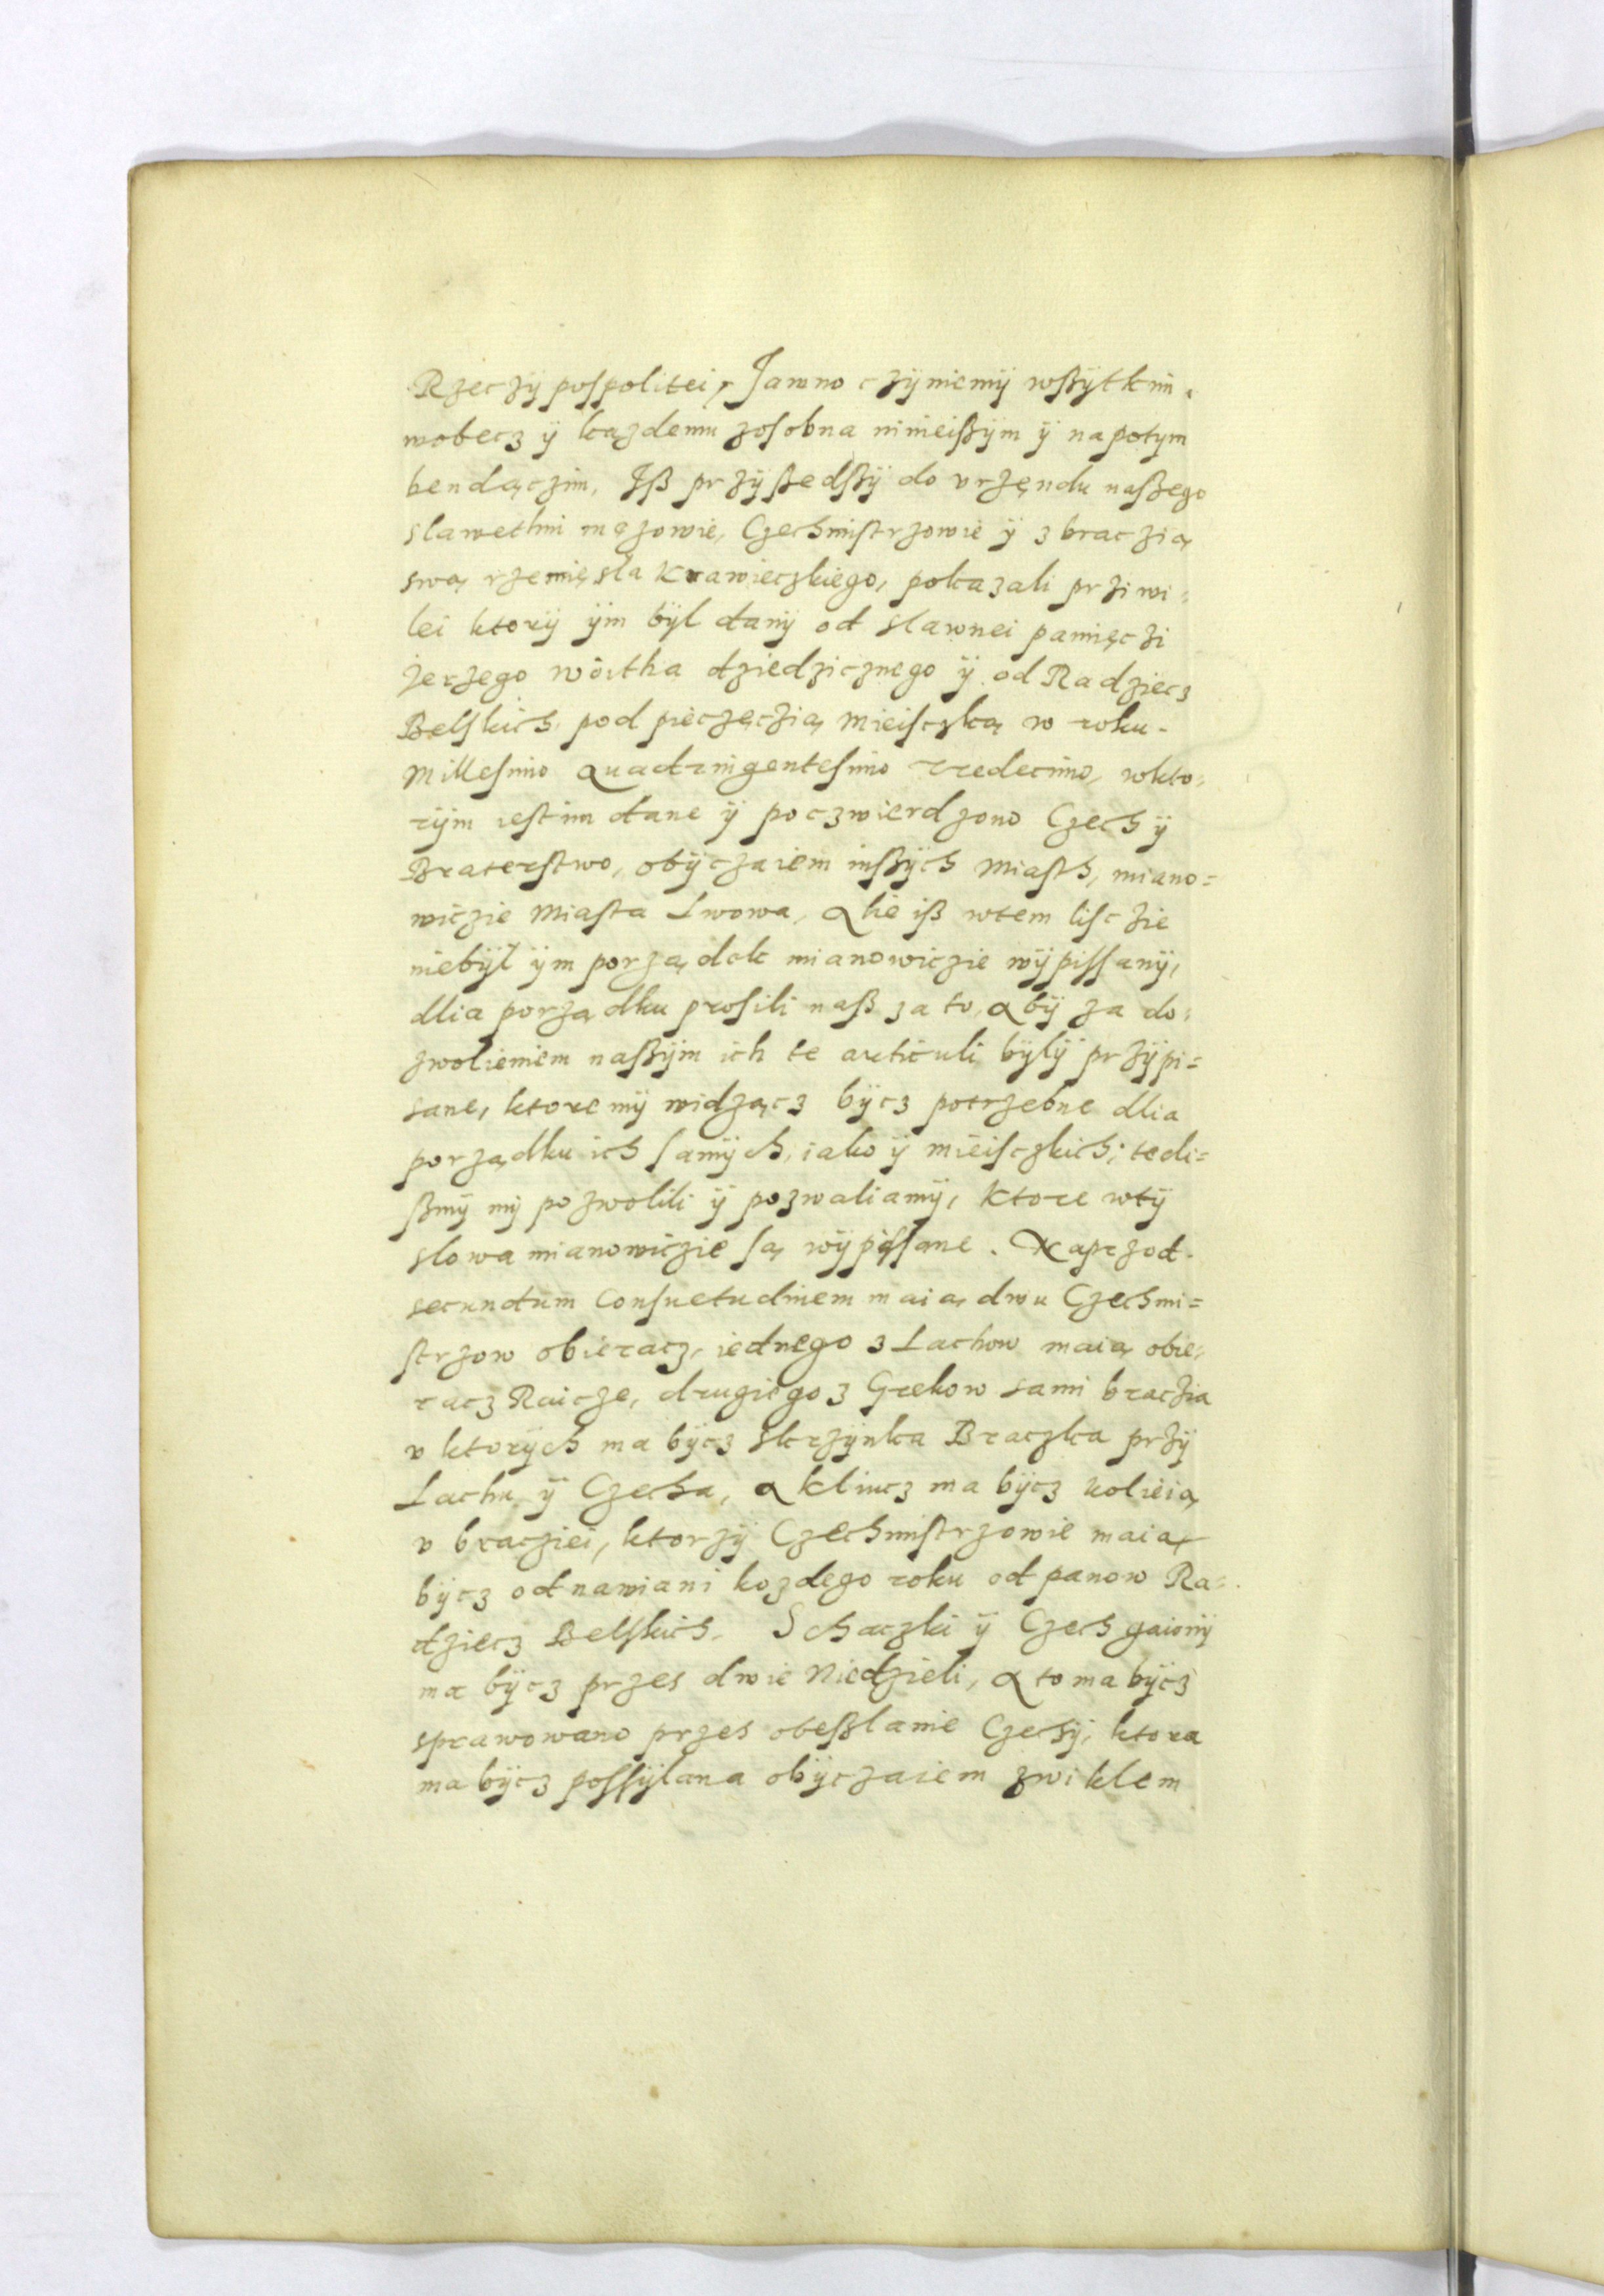 Rzeczÿ pospolitei, Jawno czÿniemÿ wßÿtkim,
wobecz ÿ kazdemu zosobna ninieißÿm ÿ napotym
bendączim, Jß przÿßedßÿ do vrzęndu naßego
slawethni męzowie, Czechmistrzowie ÿ z braczią
swą rzemięsla Krawieczkiego, pokazali prziwi=
lei ktorÿ ÿm bÿl danÿ od slawnei pamięczi
Jerzego wöitha dziedzicznego ÿ od Radziecz
Belskich pod pieczęczią Mieisczką w roku
Millesimo Quadringentesimo tredecimo, wkto=
rÿm iest im dane ÿ poczwierdzono Czech ÿ
Braterstwo, obÿczaiem inßÿch Miasth, miano=
wiczie Miasta Lwowa, Alie iß wtem lisczie
niebÿl ÿm porządek mianowiczie wÿpissanÿ,
dlia porządku prosili naß za to, abÿ za do=
zwolieniem naßÿm ich te articuli bÿlÿ przÿpi=
sane, ktore mÿ widzącz bÿcz potrzebne dlia
porządku ich samÿch, iako ÿ mieisczkich; tedi=
ßmÿ mÿ pozwolili ÿ pozwaliamÿ, ktore wtÿ
slowa mianowiczie są wÿpissane. Naprzod
secundum Consuetudinem maią dwu Czechmi=
strzow obieracz, iednego z Lachow maią obie=
racz Raicze, drugiego z Grekow sami braczia
v ktorÿch ma bÿcz skrzÿnka Braczka przÿ
Lachu ÿ Czecha, a kliucz ma bÿcz kolieią
v bracziei, ktorzÿ Czechmistrzowie maią
bÿcz odnawiani kozdego roku od panow Ra=
dziecz Belskich. Schaczki ÿ Czech gaionÿ
ma bÿcz przes dwie Niedzieli, a to ma bÿcz
sprawowano przes obeßlanie Czechÿ, ktora
ma bÿcz possÿlana obÿczaiem zwiklem